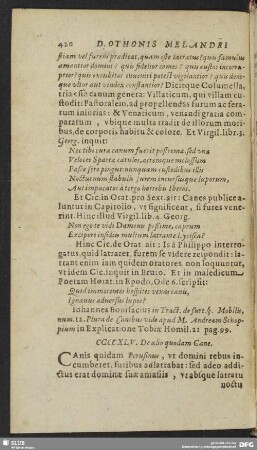 420 D. OTHONIS MELANDRI
stiam vel furem prædicat, quam iste latratus? quis famulus
amantior domini? quis fidelior comes? quis custos incorru-
ptior? quis excubitor inveniri potest vigilantior? quis deni-
que vltor aut vindex constantior? Dicitque Columella,
tria esse canum genera: Villaticum, qui villam cu-
stodit: Pastoralem, ad propellendas furum ac fera-
rum iniurias: & Venaticum, venandi gratia com-
paratum, vbique multa tradit de illorum mori-
bus, de corporis habitu & colore. Et Virgil. libr. 3.
Georg. inquit:
Nec tibi cura canum fuerit postrema, sed vna
Veloces Spartæ catulos, acremque molossum
Pasce sero pingui: nunquam custodibus illis
Nocturnum stabulis furem incursusque luporum,
Aut impacatos à tergo horrebis Iberos.
Et Cic. in Orat. pro Sext. ait: Canes publice a-
luntur in Capitolio, vt significent, si fures vene-
rint. Hinc illud Virgil. lib. 4. Georg.
Non ego te vidi Damonis pessime, caprum
Excipere insidiis multum latrante Lycisca?
Hinc Cic. de Orat. ait: Is à Philippo interro-
gatus, quid latraret, furem se videre respondit: la-
trant enim iam quidem oratores non loquuntur,
vt idem Cic. inquit in Bruto. Et in maledicum
Poetam Horat. in Epodo, Ode 6. scripsit:
Quid immerentes hospites vexas canis,
Ignavus adversus lupos?
Iohannes Bonifacius in Tract. de furt. §. Mobilis,
num. 12. Plura de Canibus vide apud M. Andream Schop-
pium in Explicatione Tobiæ Homil. 21 pag. 99.
CCCLXLV. De alio quodam Cane.
CAnis quidam Perusinus, vt domini rebus in-
cumberet, furibus adlatrabat: sed adeo addi-
ctus erat dominæ suæ amasiis, vt absque latratu
noctu
SLUB